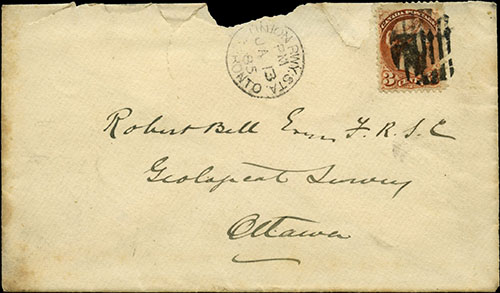 CANADA POSTAGE
3
UNION RWY. STA.
PM
JA 13
85
TORONTO
Robert Bell Esqre F.R.S.C
Geological Survey
Ottawa